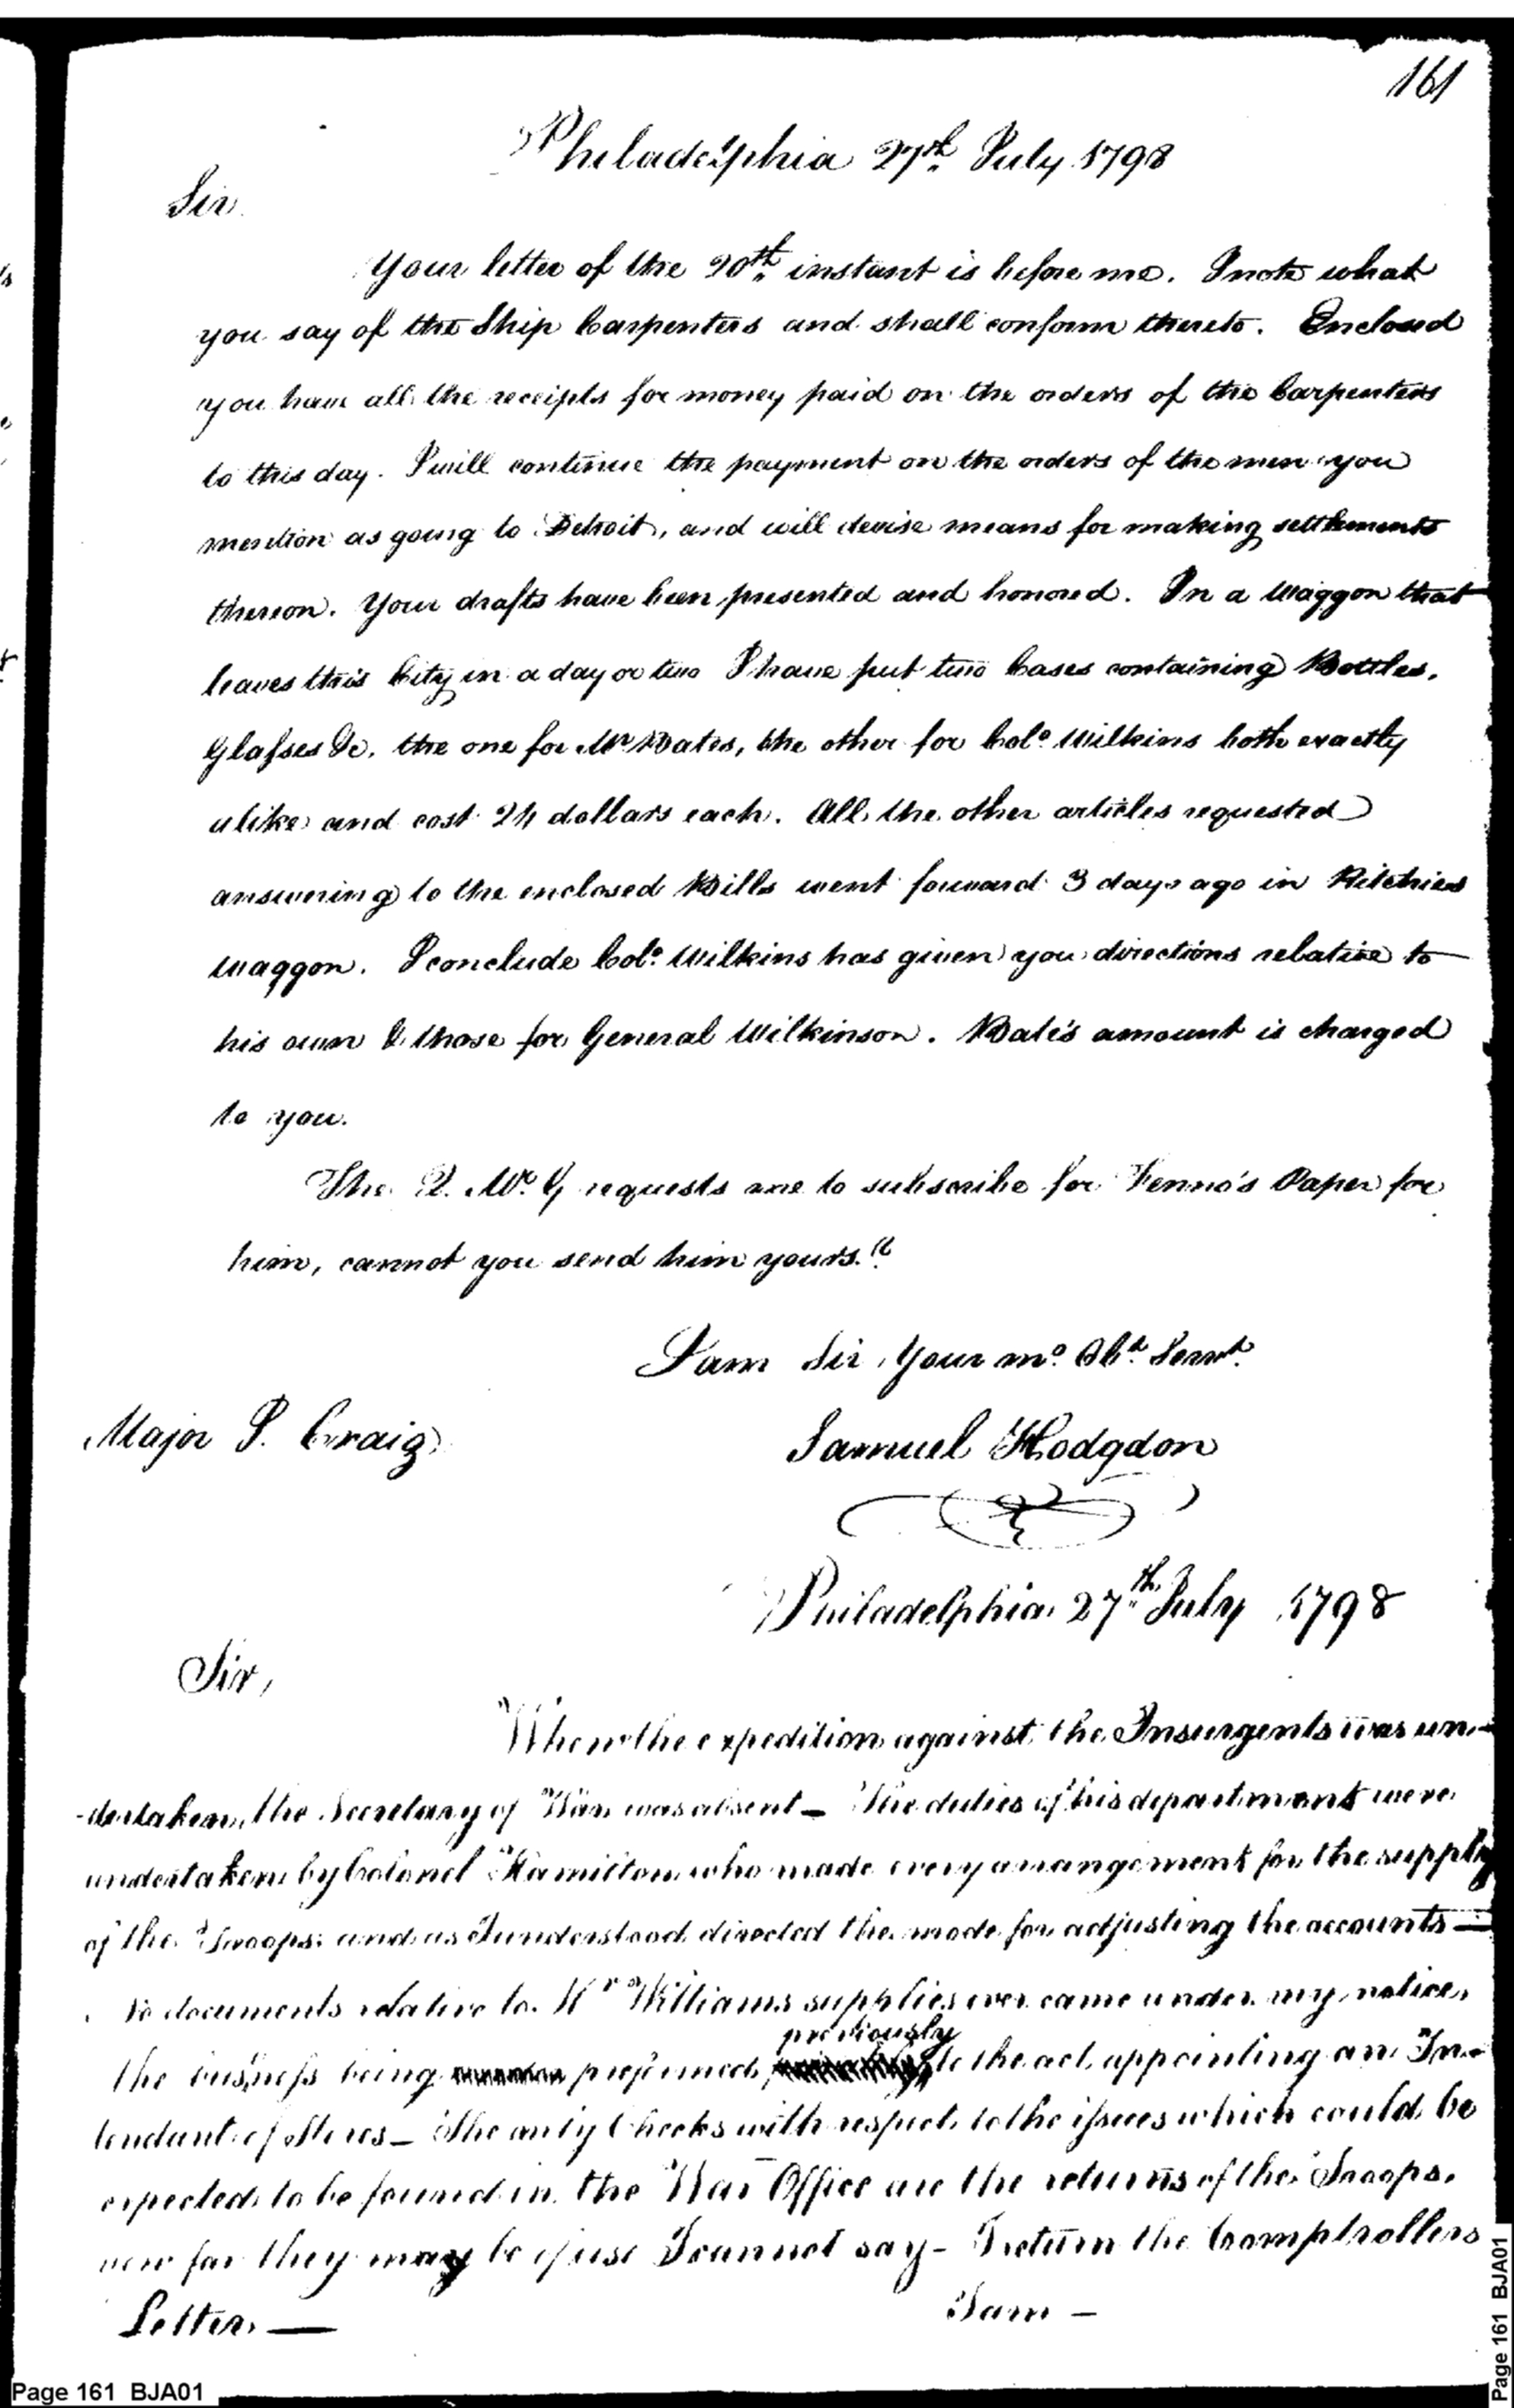 161
Philadelphia 27th July 1798
Sir
Your letter of the 20th instant is before me. I note what
you say of the Ship Carpenters and shall conform thereto. Enclosed
you have all the receipts for money paid on the orders of the Carpenters
to this day. I will continue the payment on the orders of the men you
mention as going to Detroit, and will devise means for making settlements
thereon. Your drafts have been presented and honored. In a Waggon that
leaves this City in a day or two I have put two Cases containing Bottles,
Glasses &c, the one for Mr Bates, the other for Colo Wilkins both exactly
alike and cost 24 dollars each. All the other articles requested
answering to the enclosed Bills went forward 3 days ago in Ritchies
Waggon. I conclude Colo Wilkins has given you directions relative to
his own & those for General Wilkinson. Bate's amount is charged
to you.
The Q. Mr. G requests me to subscribe for Fenno's Paper for
him, cannot you send him yours.
I am Sir, Your mo Obt Servt
Major I. Craig
Samuel Hodgdon
Philadelphia 27th July 1798
Sir,
When the expedition against the Insurgents was un-
-dertaken, the Secretary of War was absent - The duties of his department were
undertaken by Colonel Hamilton who made every arrangement for the supply
of the Troops and as I understood directed the mode for adjusting the accounts -
No documents relative to Mr Williams supplies ever came under my notice,
previously
the business being prefumed to the act appointing an In-
tendant of Stores - The only Checks with respect to the issues which could be
expected to be found in the War Office are the returns of the Troops.
how far they may be of use I cannot say - I return the Comptrollers
Letter. —
I am -
Page 161 BJA01
Page 161 BJA01